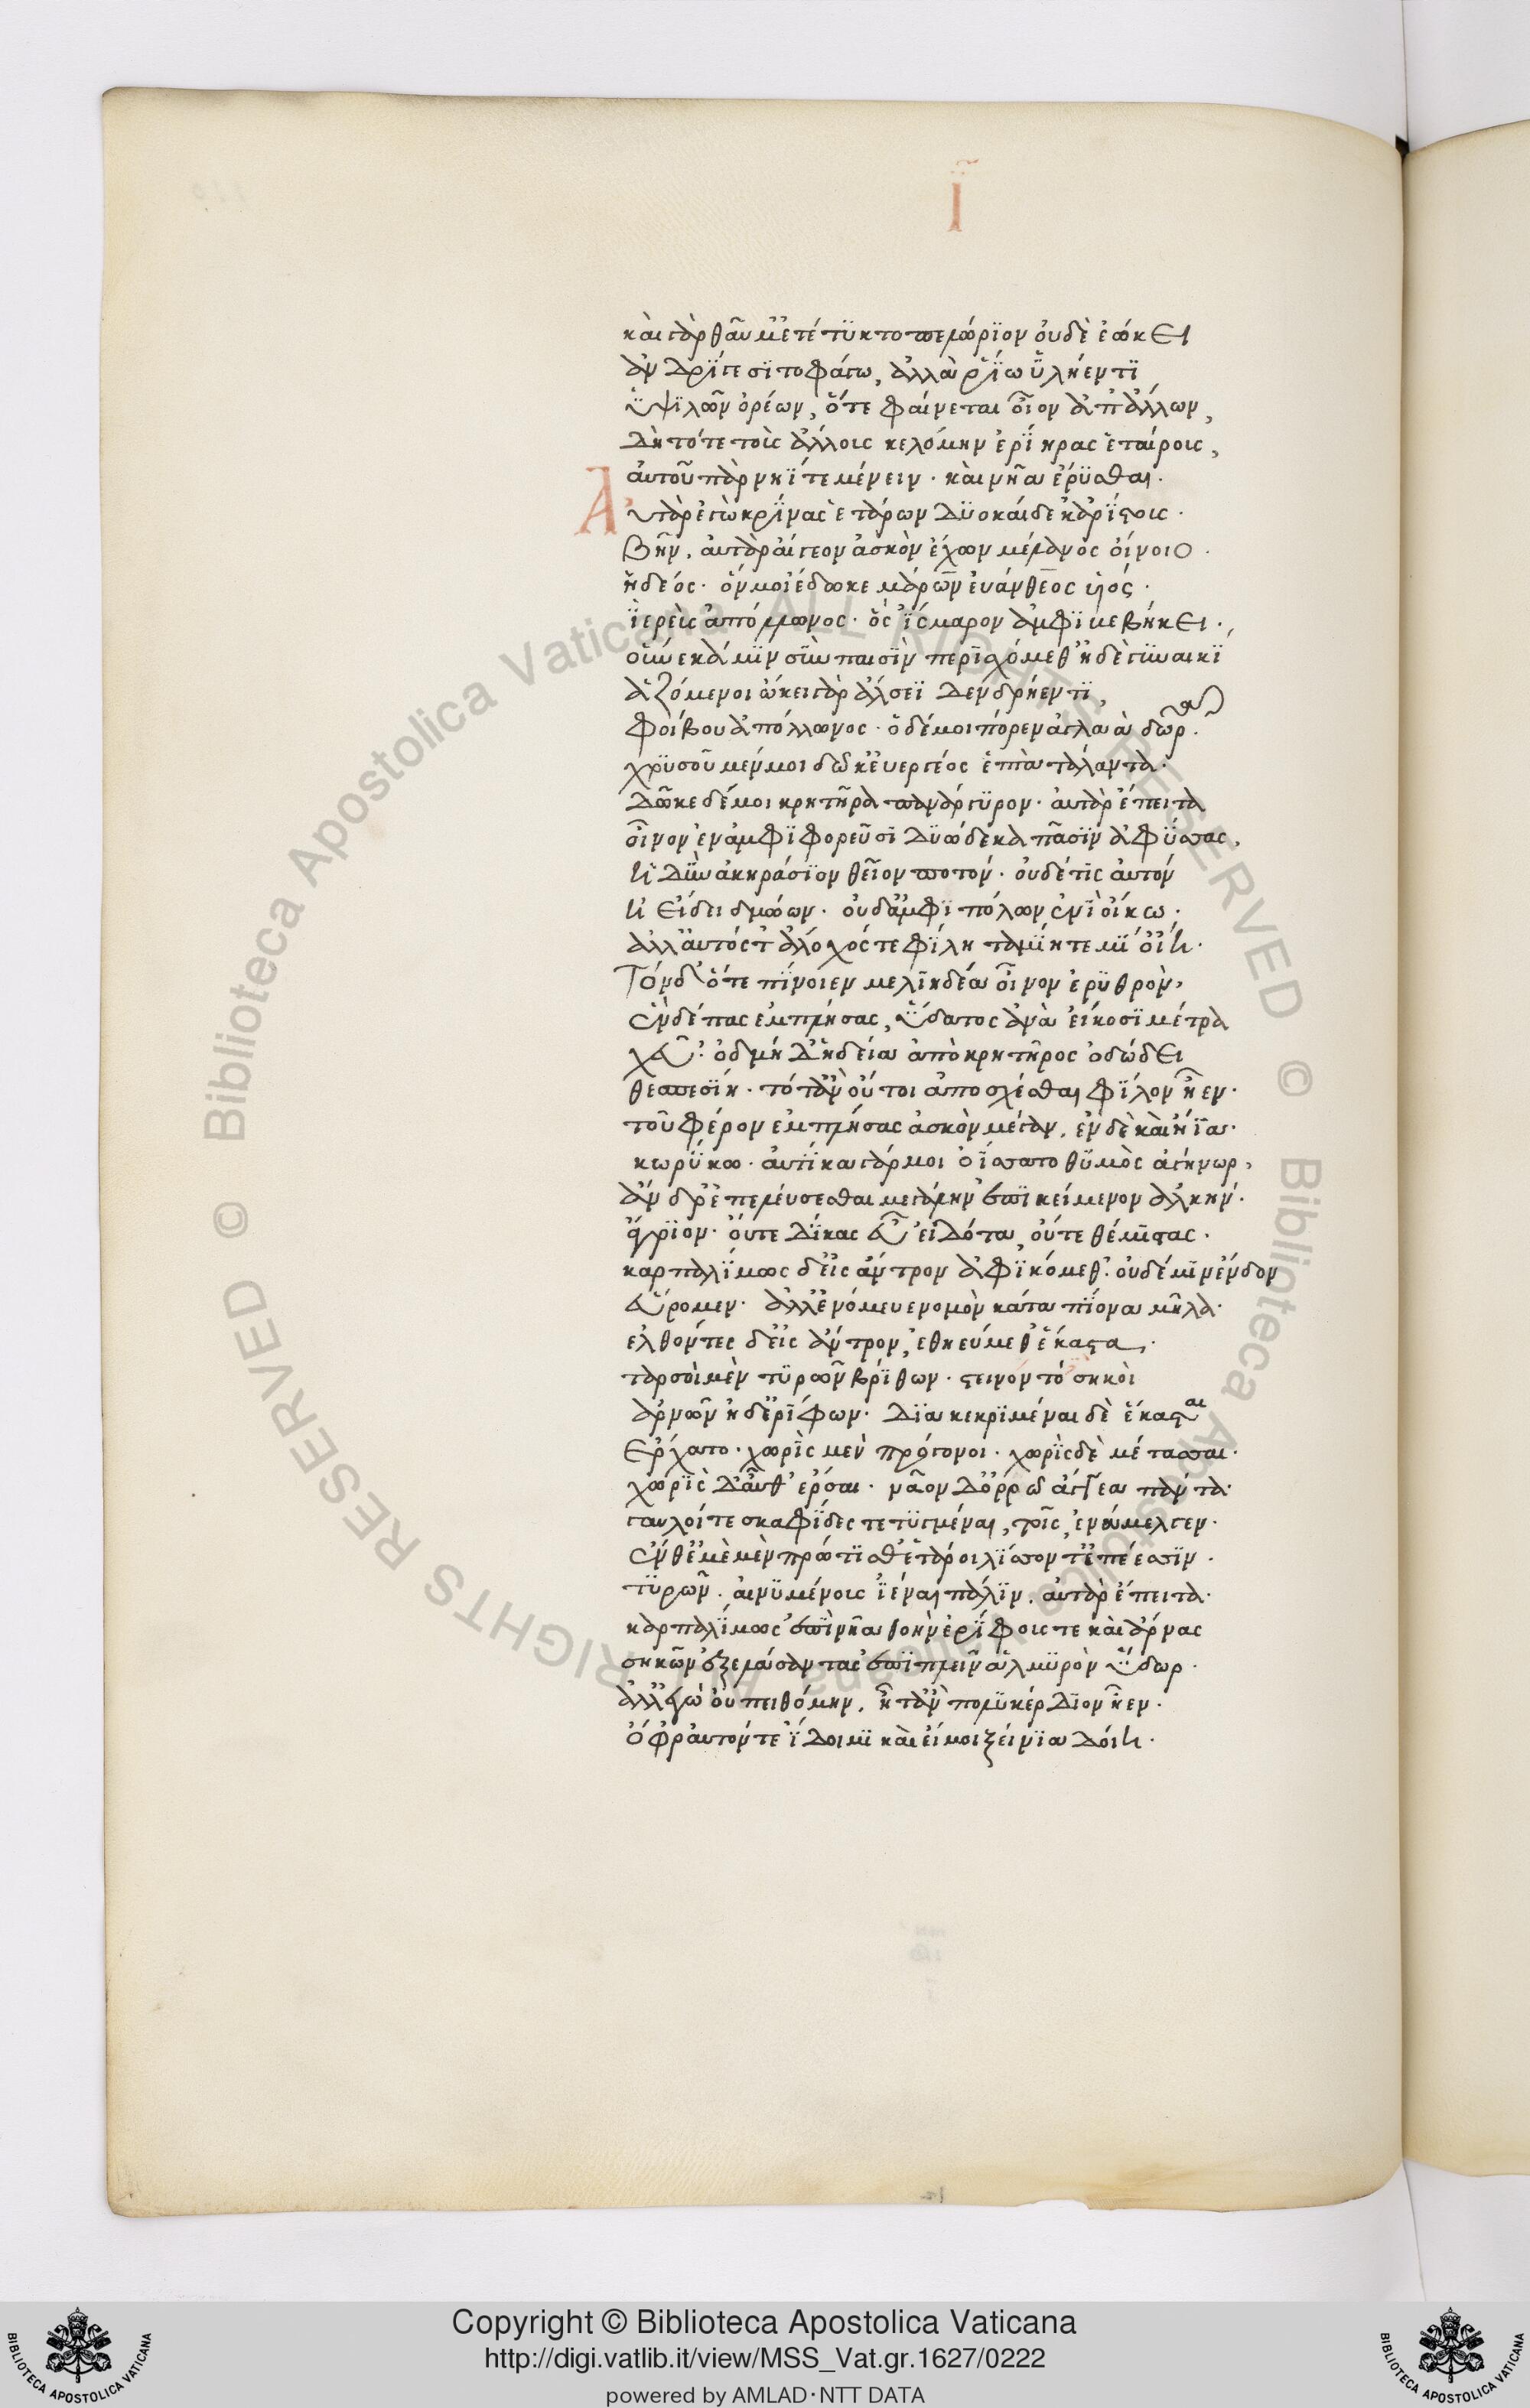 Ϊ
καὶ γὰρ θαῦμ' ἐτέτυκτο πελώριον οὐδὲ ἐώκει
ἀνδρί γε σιτοφάγω, ἀλλὰ ῥίω ὑλήεντι
ὑψιλῶν ὀρέων, ὅτε φαίνεται οἶον ἀπ' ἄλλων,
δὴ τότε τοὺς ἄλλους κελόμην ἐρίηρας ἑταίρους,
αὐτοῦ πὰρ νηΐ τε μένειν· καὶ νῆα ἔρυσθαι·
Αὐτὰρ ἐγὼ κρίνας ἑτάρων δυοκαίδεκ' ἀρίστους·
βῆν, αὐτὰρ αἴγεον ἀσκὸν ἔχων μέλανος οἴνοιο·
ἡδέος· ὅν μοι ἔδωκε μάρων εὐάνθεος υἱός·
ἱερεὺς ἀπόλλωνος· ὃς ἴσμαρον ἀμφιβεβήκει·
οὕνεκά μιν σὺν παισὶν περισχόμεθ' ἠδὲ γυναικί
ἁζόμενοι ὤκει γὰρ ἄλσεϊ δενδρήεντι,
φοίβου ἀπόλλωνος· ὁ δέ μοι πόρεν ἀγλαὰ δῶρα·
χρυσοῦ μέν μοι δῶκ' εὐεργέος ἑπτὰ τάλαντα·
δῶκε δέ μοι κρητῆρα πανάργυρον· αὐτὰρ ἔπειτα
οἶνον ἐν ἀμφιφορεῦσι δυώδεκα πᾶσιν ἀφύσσας,
ἡδὺν ἀκηράσιον θεῖον ποτόν· οὐδέ τις αὐτόν
ἠείδει δμώων· οὐδ' ἀμφιπόλων ἐνὶ οἴκω·
ἀλλ' αὐτός τ' ἄλοχός τε φίλη ταμίη τε μί' οἴη·
Τὸν δ' ὅτε πίνοιεν μελιηδέα οἶνον ἐρυθρὸν,
ἓν δέπας ἐμπλήσας, ὕδατος ἀνὰ εἴκοσι μέτρα
χεῦ· ὀδμὴ δ' ἡδεῖα ἀπὸ κρητῆρος ὀδώδει
θεσπεσίη· τότ' ἂν οὔτοι ἀποσχέσθαι φίλον ἦεν·
τοῦ φέρον ἐμπλήσας ἀσκὸν μέγαν, ἐν δὲ καὶ ἤϊα·
κωρύκω· αὐτίκα γάρ μοι ὀΐσσατο θυμὸς ἀγήνωρ,
ἄνδρ' ἐπελεύσεσθαι μεγάλην ἐπικείμενον ἀλκήν·
ἄγριον· οὔτε δίκας εὖ εἰδότα, οὔτε θέμιστας·
καρπαλίμως δ' εἰς ἄντρον ἀφικόμεθ'· οὐδέ μιν ἔνδον
εὕρομεν· ἀλλ' ἐνόμευε νομὸν κάτα πίονα μῆλα·
ἐλθόντες δ' εἰς ἄντρον, ἐθηεύμεθ' ἕκαστα·
ταρσοὶ μὲν τυρῶν βρίθων· στείνοντο σηκοὶ
ἀρνῶν ἠδ' ἐρίφων· διακεκριμέναι δὲ ἕκασται
ἔρχατο· χωρὶς μὲν πρόγονοι· χωρὶς δὲ μέτασσαι·
χωρὶς δ' αὖθ' ἕρσαι· νᾶον δ' ὀρρῶ ἄγγεα πάντα·
γαυλοί τε σκαφίδες τετυγμέναι, τοῖς ἐνάμελγεν·
ἔνθ' ἐμὲ μὲν πρώτισθ' ἕταροι λίσσοντ' ἐπέεσσιν·
τυρῶν· αἰνυμένους ἰέναι πάλιν, αὐτὰρ ἔπειτα·
καρπαλίμως ἐπὶ νῆα θοὴν ἐρίφους τε καὶ ἄρνας
σηκῶν ἐξελάσαντας ἐπιπλεῖν ἁλμυρὸν ὕδωρ·
ἀλλ' ἐγὼ οὐ πιθόμην, ἦ τ' ἂν πολὺ κέρδιον ἦεν·
ὄφρ' αὐτόν τε ἴδοιμι καὶ εἴ μοι ξείνια δοίη·
Copyright © Biblioteca Apostolica Vaticana
http://digi.vatlib.it/view/MSS_Vat.gr.1627/0222
powered by AMLAD·NTT DATA